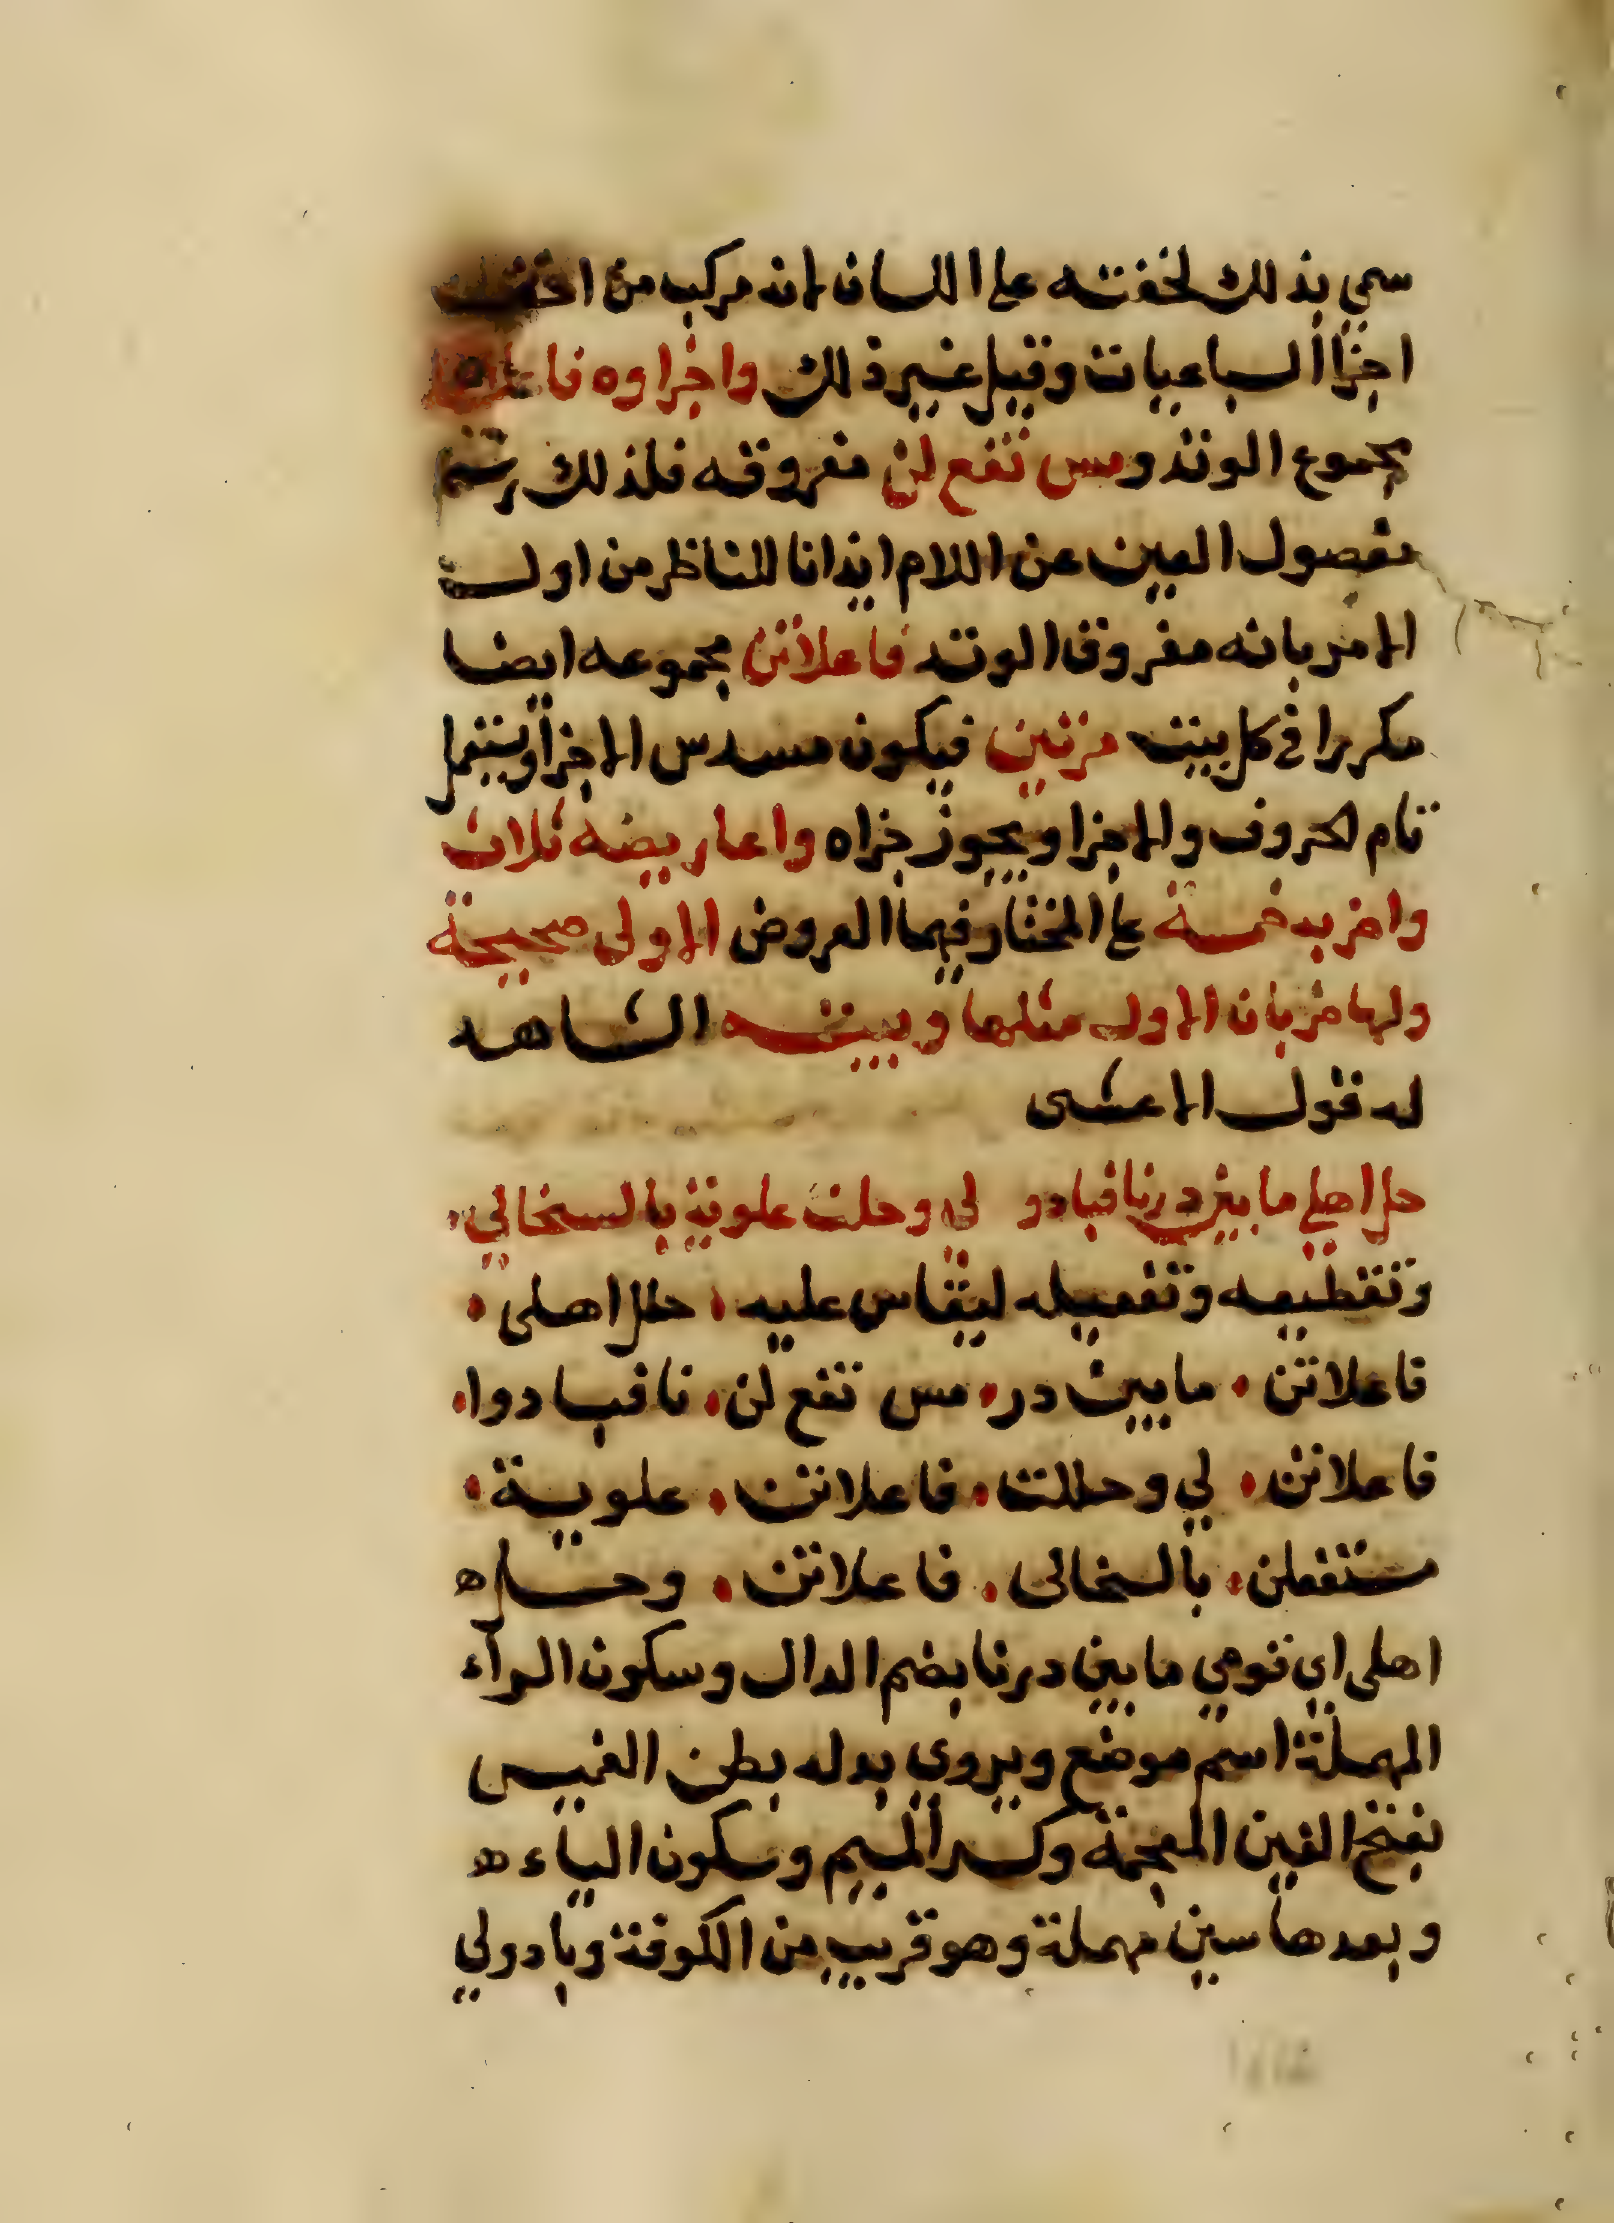 سمي بذلك لخفته على اللسان لانه مركب من اخف
اجزا السباعيات وقيل غير ذلك واجزاوه فاعلاتن
مجموع الوتد ومس تفع لن مفروقه فلذلك رسم
مفصول العين عن اللام ايذانا للناظر من اول
الامر بانه مفروق الوتد فاعلاتن مجموعه ايضا
مكررا في كل بيت مرتين فيكون مسدس الاجزا ويستعمل
تام الحروف والاجزا ويجوز جزاه واعاريضه ثلاث
واضربه خمسة على المختار فيهما العروض الاولى صحيحة
ولها ضربان الاول مثلها وبيته الشاهد
له قول الاعشى
حل اهلي ما بين درنا فبادو لي وحلت علوية بالسخالي
وتقطيعه وتفعيله ليقاس عليه حلل اهلى
فاعلاتن ما بين در مس تفع لن نا فبادوا
فاعلاتن لي وحللت فاعلاتن علوية
مستفعلن بالسخالى فاعلاتن وحل
اهلى اي قومي ما بين درنا بضم الدال وسكون الرآء
المهملة اسم موضع ويروي بدله بطن الغميس
بفتح الغين المعجمة وكسر الميم وسكون الياء
وبعدها سين مهملة وهو قريب من الكوفة وبادولي